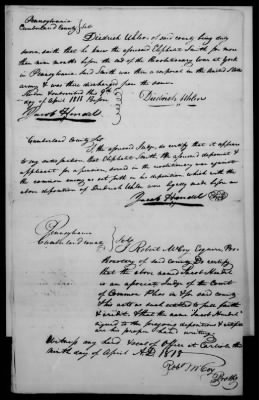 Pennsylvania
Cumberland County } Sct
Diedrich Uhler, of said county being duly
sworn saith that he knew the aforesaid Eliphalet Smith for more
than nine months before the end of the Revolutionary war at york
in Pennsylvania. Said Smith was then a corporal in the United States
army & was there discharged from the same
Sworn & subscribed this 9th
day of April 1818 Before
Diedrich Uhler
Jacob Hendel
Cumberland County Ss
I the aforesaid Judge, do certify that it appears
to my satisfaction that Eliphalet Smith the aforesaid deponent &
Applicant for a pension, served in the revolutionary war against
the common enemy as set forth in his deposition, which with the
above deposition of Diedrich Uhler were legally made before me
Jacob Hendel
Pennsylvania
Cumberland County } Sct
I Robert McCoy Esquire, Pro-
thonotary of said county do certify
that the above named Jacob Hendel
is an associate Judge of the Court
of Common Pleas in & for said county
This acts as such entitled to full faith
& credit & that the name "Jacob Hendel"
signed to the foregoing depositions & certificate
are his proper hand writing.
Witness my hand & seal of Office at Carlisle the
ninth day of April A.D. 1818
Robt McCoy
Prothy